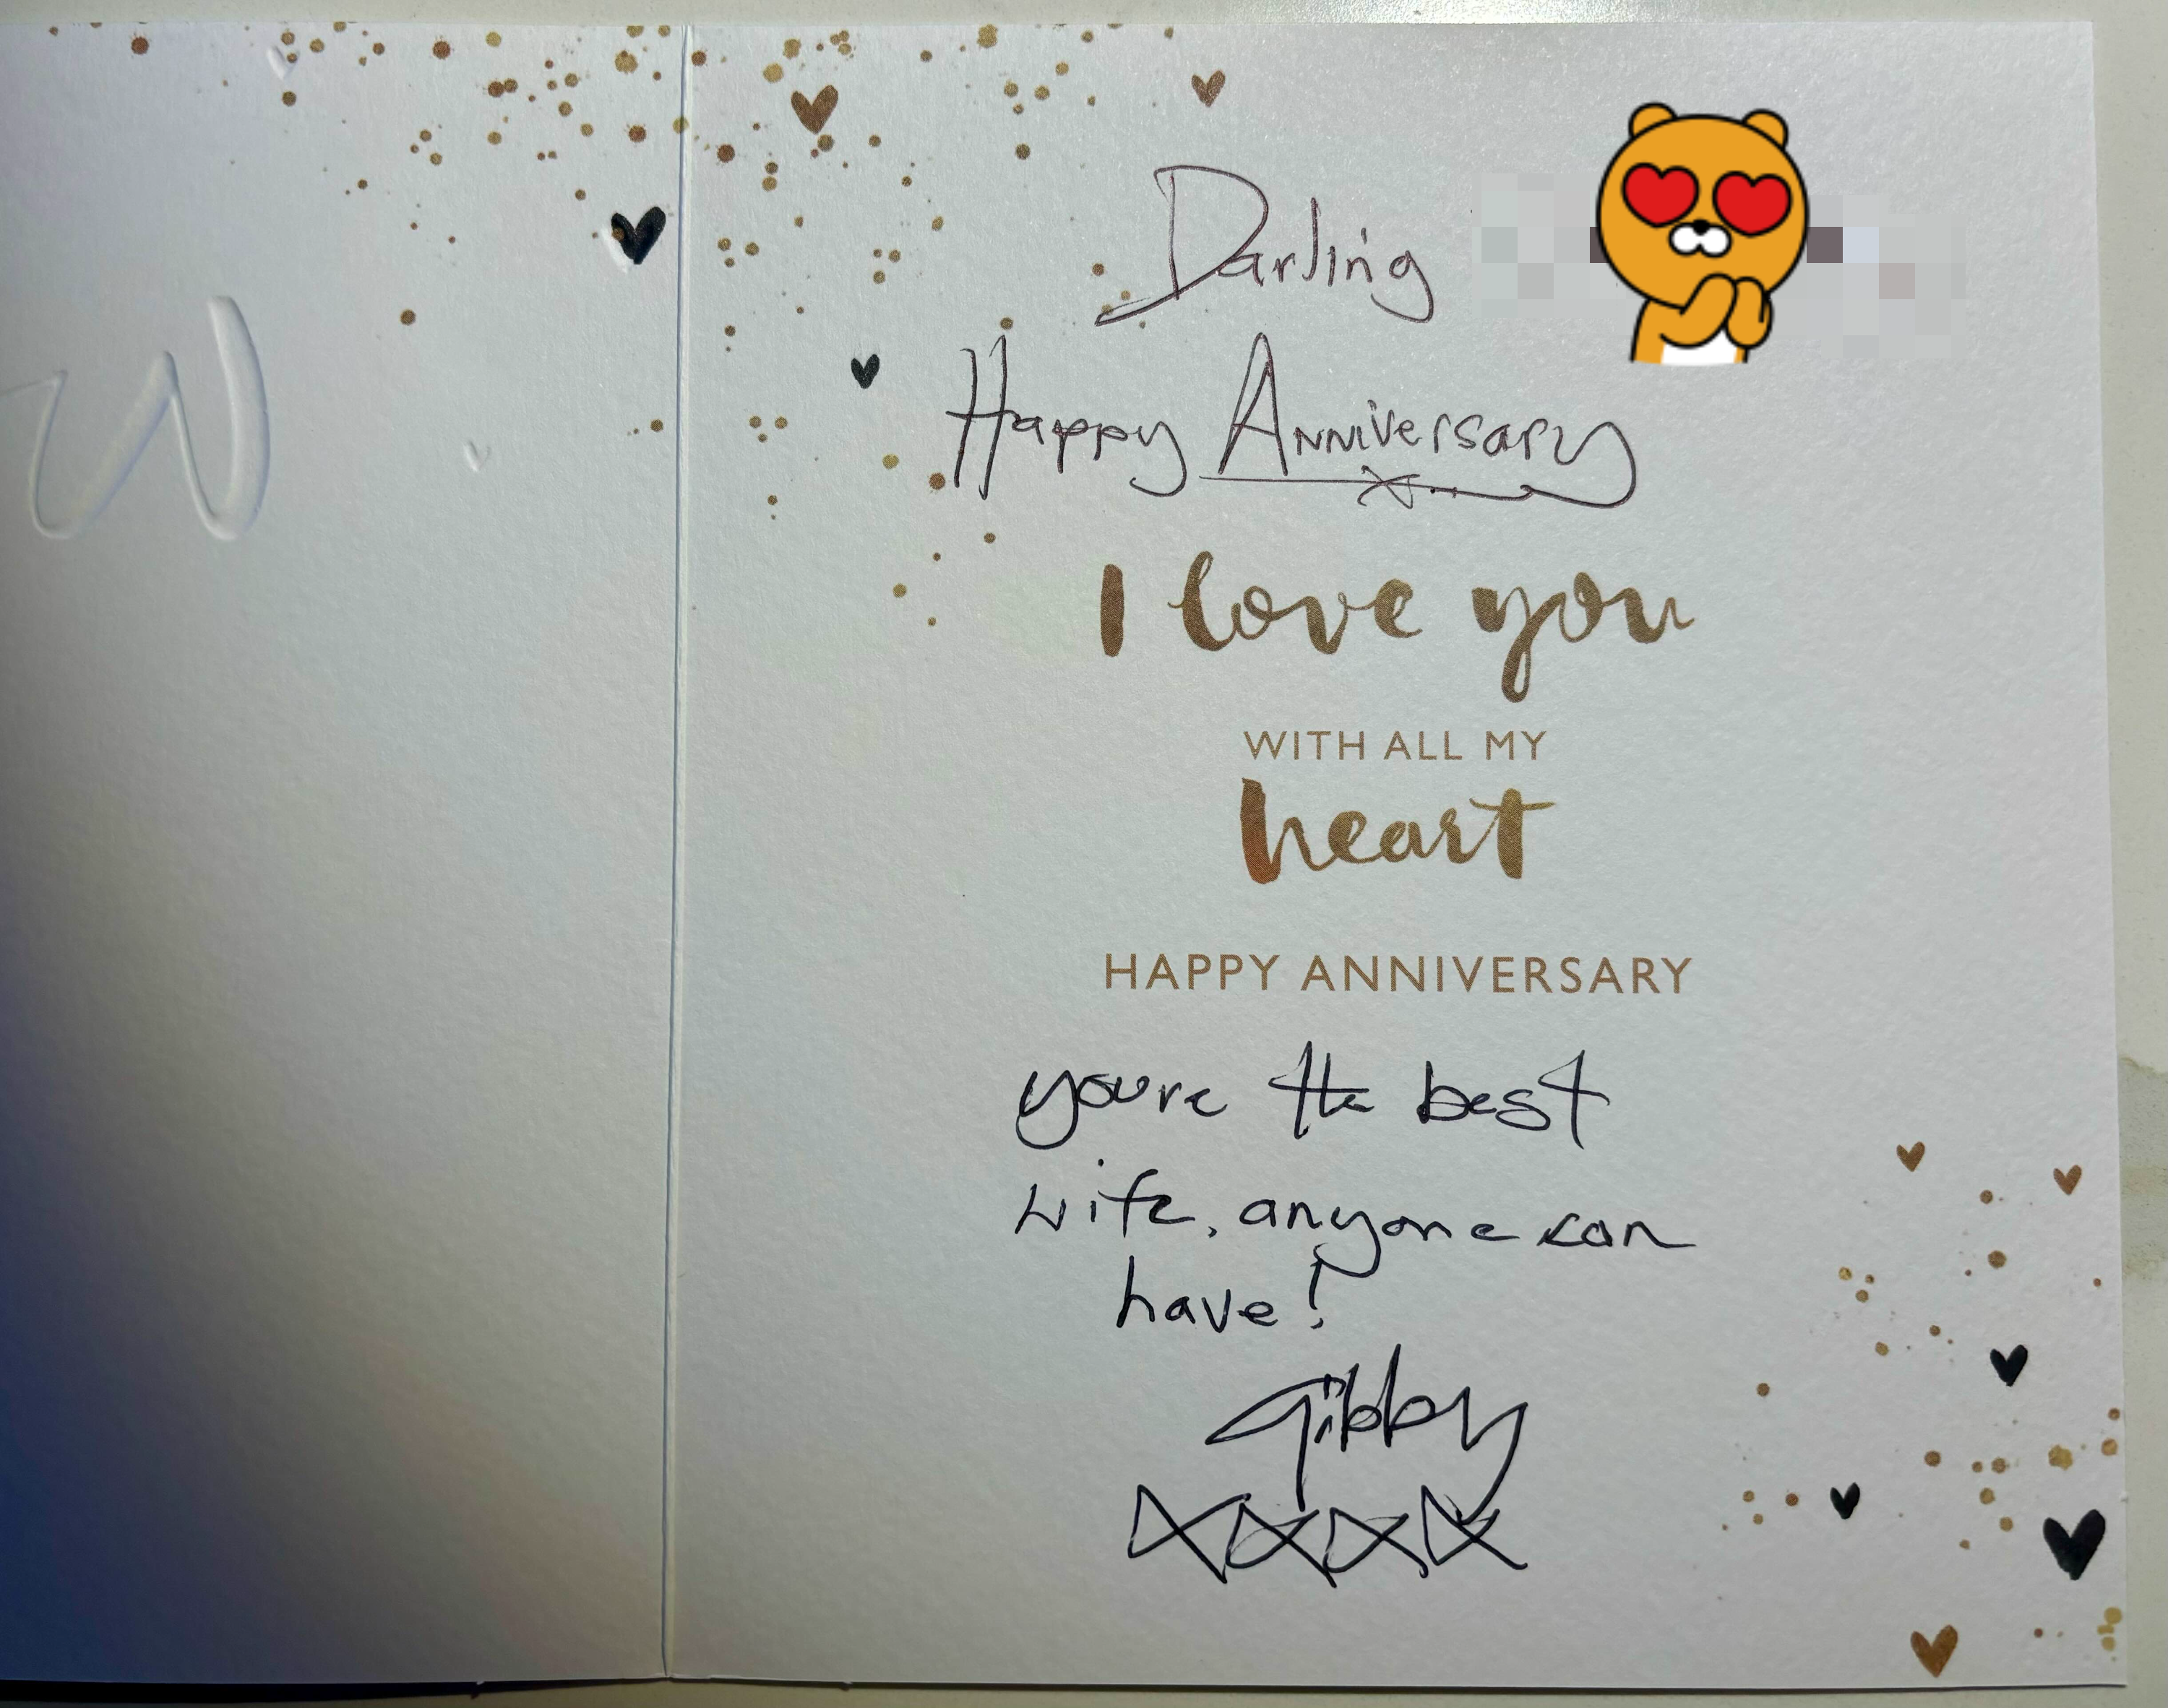 Darling
Happy Anniversary
x
I love you
WITH ALL MY
heart
HAPPY ANNIVERSARY
youre the best
wife, anyone can
have!
Gibby
xxxx